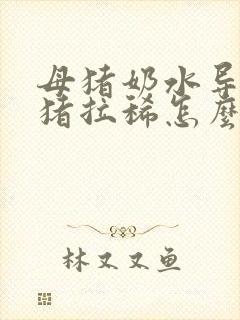 母猪奶水导
猪拉稀怎麽
林又又鱼